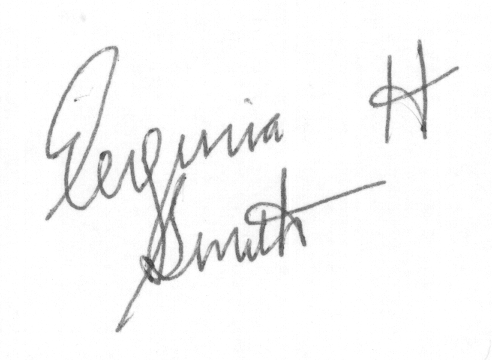 Verginia H
Smith